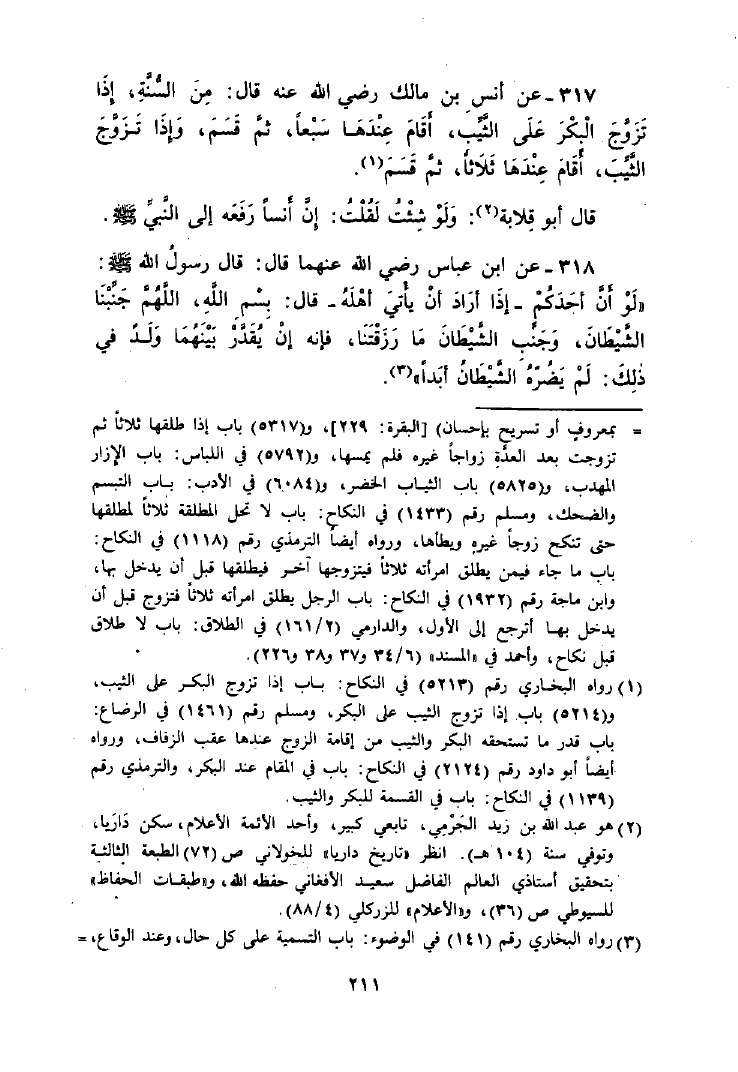 ٣١٧ - عن أنس بن مالك رضي الله عنه قال: مِنَ السُّنَّةِ، إِذَا
تَزَوَّجَ الْبِكْرَ عَلَى الثَّيِّبِ، أَقَامَ عِنْدَهَا سَبْعاً، ثمَّ قَسَمَ، وَإِذَا تَزَوَّجَ
الثَّيِّبَ، أَقَامَ عِنْدَهَا ثَلَاثاً، ثمَّ قَسَمَ(١).
قال أبو قِلابة(٢): وَلَوْ شِئْتُ لَقُلْتُ: إِنَّ أَنساً رَفَعَه إلى النَّبيِّ ﷺ.
٣١٨ - عن ابن عباس رضي الله عنهما قال: قال رسولُ الله ﷺ:
«لَوْ أَنَّ أَحَدَكُمْ - إِذَا أَرَادَ أَنْ يَأْتِيَ أَهْلَهُ - قال: بِسْمِ اللَّهِ، اللَّهُمَّ جَنِّبْنَا
الشَّيْطَانَ، وَجَنِّبِ الشَّيْطَانَ مَا رَزَقْتَنَا، فإنه إنْ يُقَدَّرْ بَيْنَهُمَا وَلَدٌ في
ذلِكَ: لَمْ يَضُرَّهُ الشَّيْطَانُ أبَداً»(٣).
= بمعروف أو تسريح بإحسان) [البقرة: ٢٢٩]، و(٥٣١٧) باب إذا طلقها ثلاثاً ثم
تزوجت بعد العدَّةِ زواجاً غيره فلم يمسها، و(٥٧٩٢) في اللباس: باب الإزار
المهدب، و(٥٨٢٥) باب الثياب الخضر، و(٦٠٨٤) في الأدب: باب التبسم
والضحك، ومسلم رقم (١٤٣٣) في النكاح: باب لا تحل المطلقة ثلاثاً لمطلقها
حتى تنكح زوجاً غيره ويطأها، ورواه أيضاً الترمذي رقم (١١١٨) في النكاح:
باب ما جاء فيمن يطلق امرأته ثلاثاً فيتزوجها آخر فيطلقها قبل أن يدخل بها،
وابن ماجة رقم (١٩٣٢) في النكاح: باب الرجل يطلق امرأته ثلاثاً فتزوج قبل أن
يدخل بها أترجع إلى الأول، والدارمي (١٦١/٢) في الطلاق: باب لا طلاق
قبل نكاح، وأحمد في «المسند» (٣٤/٦ و٣٧ و٣٨ و٢٢٦).
(١) رواه البخاري رقم (٥٢١٣) في النكاح: باب إذا تزوج البكر على الثيب،
و(٥٢١٤) باب إذا تزوج الثيب على البكر، ومسلم رقم (١٤٦١) في الرضاع:
باب قدر ما تستحقه البكر والثيب من إقامة الزوج عندها عقب الزفاف، ورواه
أيضاً أبو داود رقم (٢١٢٤) في النكاح: باب في المقام عند البكر، والترمذي رقم
(١١٣٩) في النكاح: باب في القسمة للبكر والثيب.
(٢) هو عبد الله بن زيد الجَرْمِي، تابعي كبير، وأحد الأئمة الأعلام، سكن دَارَيا،
وتوفي سنة (١٠٤ هـ). انظر «تاريخ داريا» للخولاني ص (٧٢) الطبعة الثالثة
بتحقيق أستاذي العالم الفاضل سعيد الأفغاني حفظه الله، و«طبقات الحفاظ»
للسيوطي ص (٣٦)، و«الأعلام» للزركلي (٨٨/٤).
(٣) رواه البخاري رقم (١٤١) في الوضوء: باب التسمية على كل حال، وعند الوقاع، =
٢١١